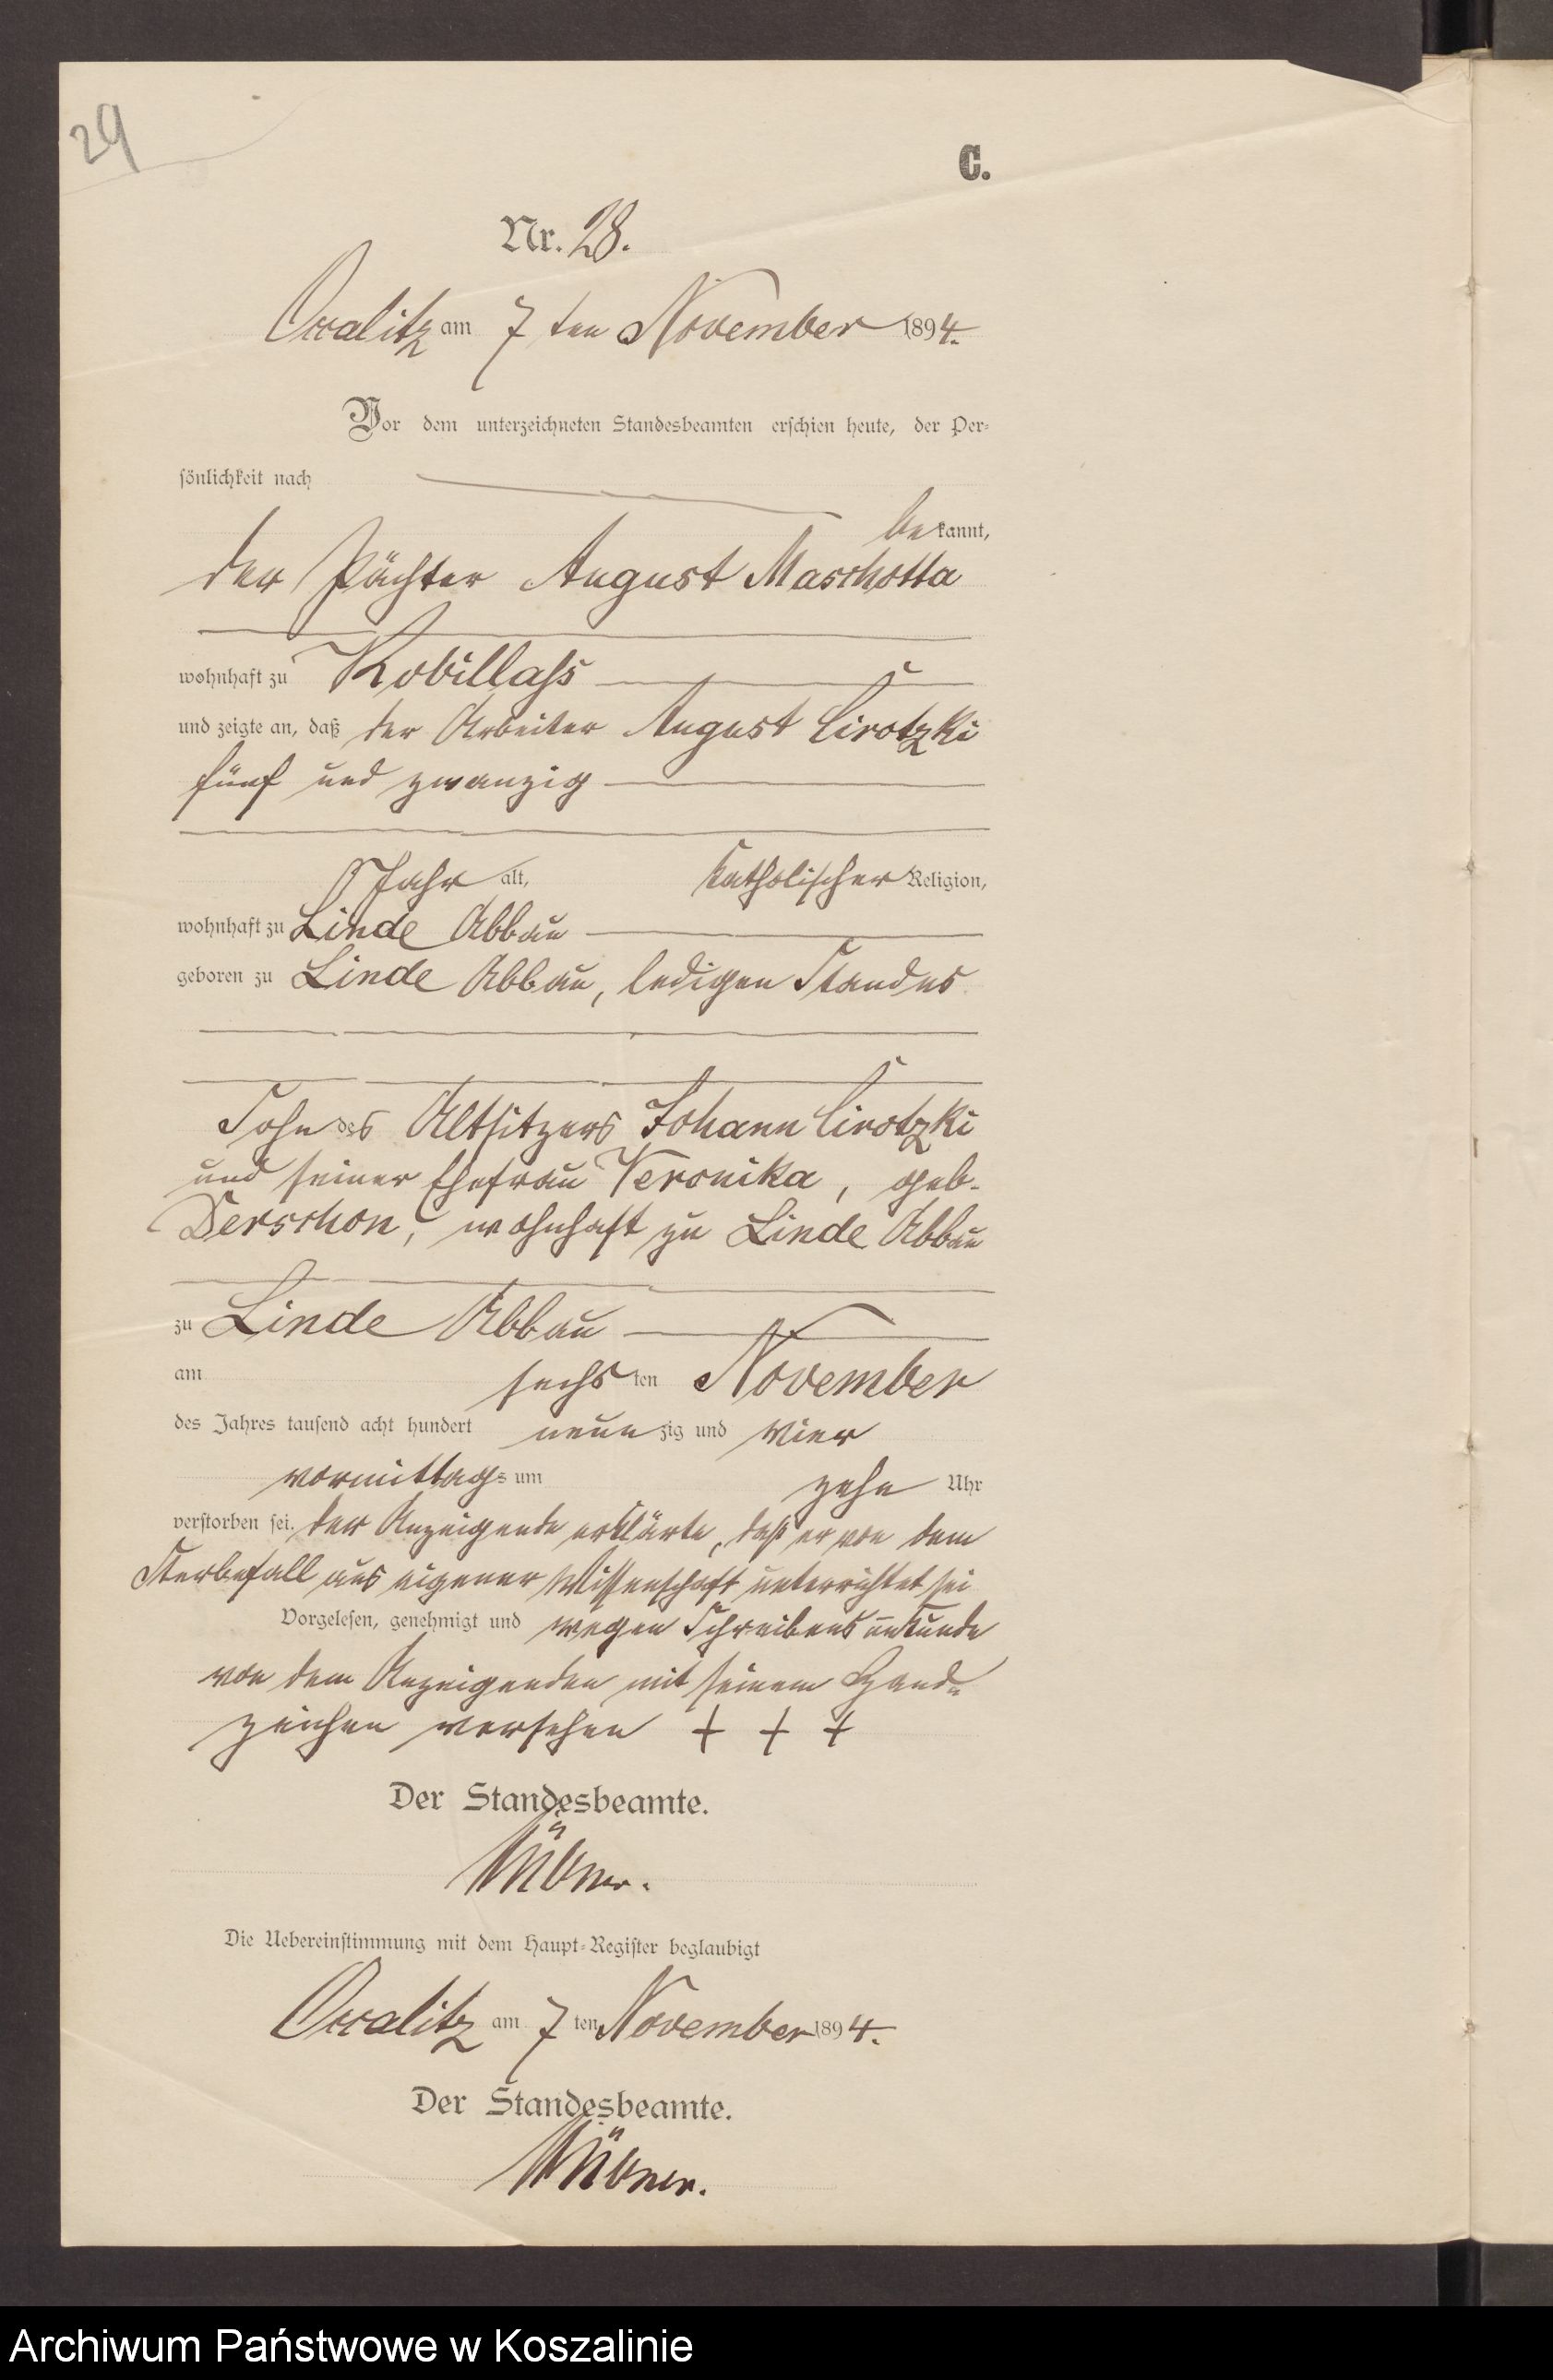 29
C.
Nr. 28.
Occalitz am 7 ten November 1894.
Vor dem unterzeichneten Standesbeamten erschien heute, der Per-
sönlichkeit nach
bekannt,
der Pächter August Maschotta
wohnhaft zu Kobillass
und zeigte an, daß der Arbeiter August Cirotzki
fünf und zwanzig
Jahr alt, katholischer Religion,
wohnhaft zu Linde Abbau
geboren zu Linde Abbau, ledigen Standes
Sohn des Altsitzers Johann Cirotzki
und seiner Ehefrau Veronika, geb.
Derschon, wohnhaft zu Linde Abbau
zu Linde Abbau
am sechsten November
des Jahres tausend acht hundert neunzig und vier
vormittags um zehn Uhr
verstorben sei. der Anzeigende erklärte, daß er von dem
Sterbefall aus eigener Wissenschaft unterrichtet sei
Vorgelesen, genehmigt und wegen Schreibensunkunde
von dem Anzeigenden mit seinem Hand-
zeichen versehen + + +
Der Standesbeamte.
Die Uebereinstimmung mit dem Haupt-Register beglaubigt
Occalitz am 7 ten November 1894.
Der Standesbeamte.
Archiwum Państwowe w Koszalinie